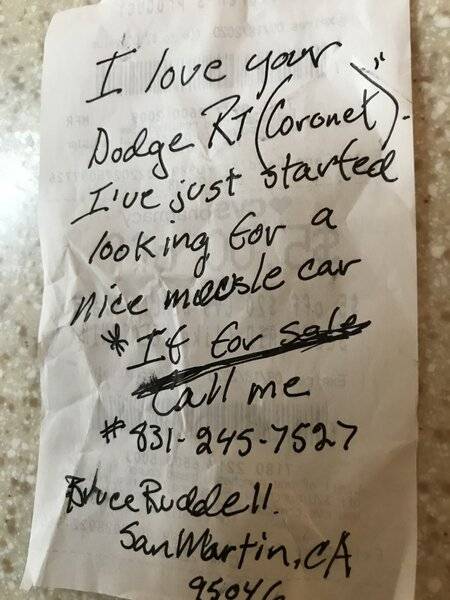 I love your
Dodge RT (Coronet)".
I've just started
looking for a
nice muscle car
* If for sale
Call me
# 831-245-7527
Bruce Ruddell.
San Martin, CA
95046